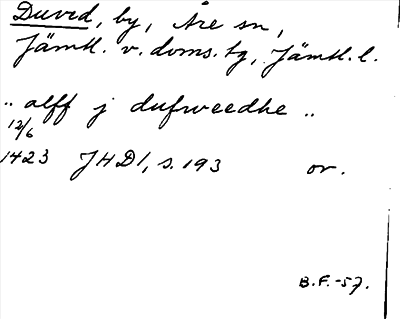 Duved, by, Åre sn,
Jämtl. v. doms. tg, Jämtl. l.
„ alff j dufweedhe „
12/6
1423 JHD1, s. 193 or.
B.F.-57.